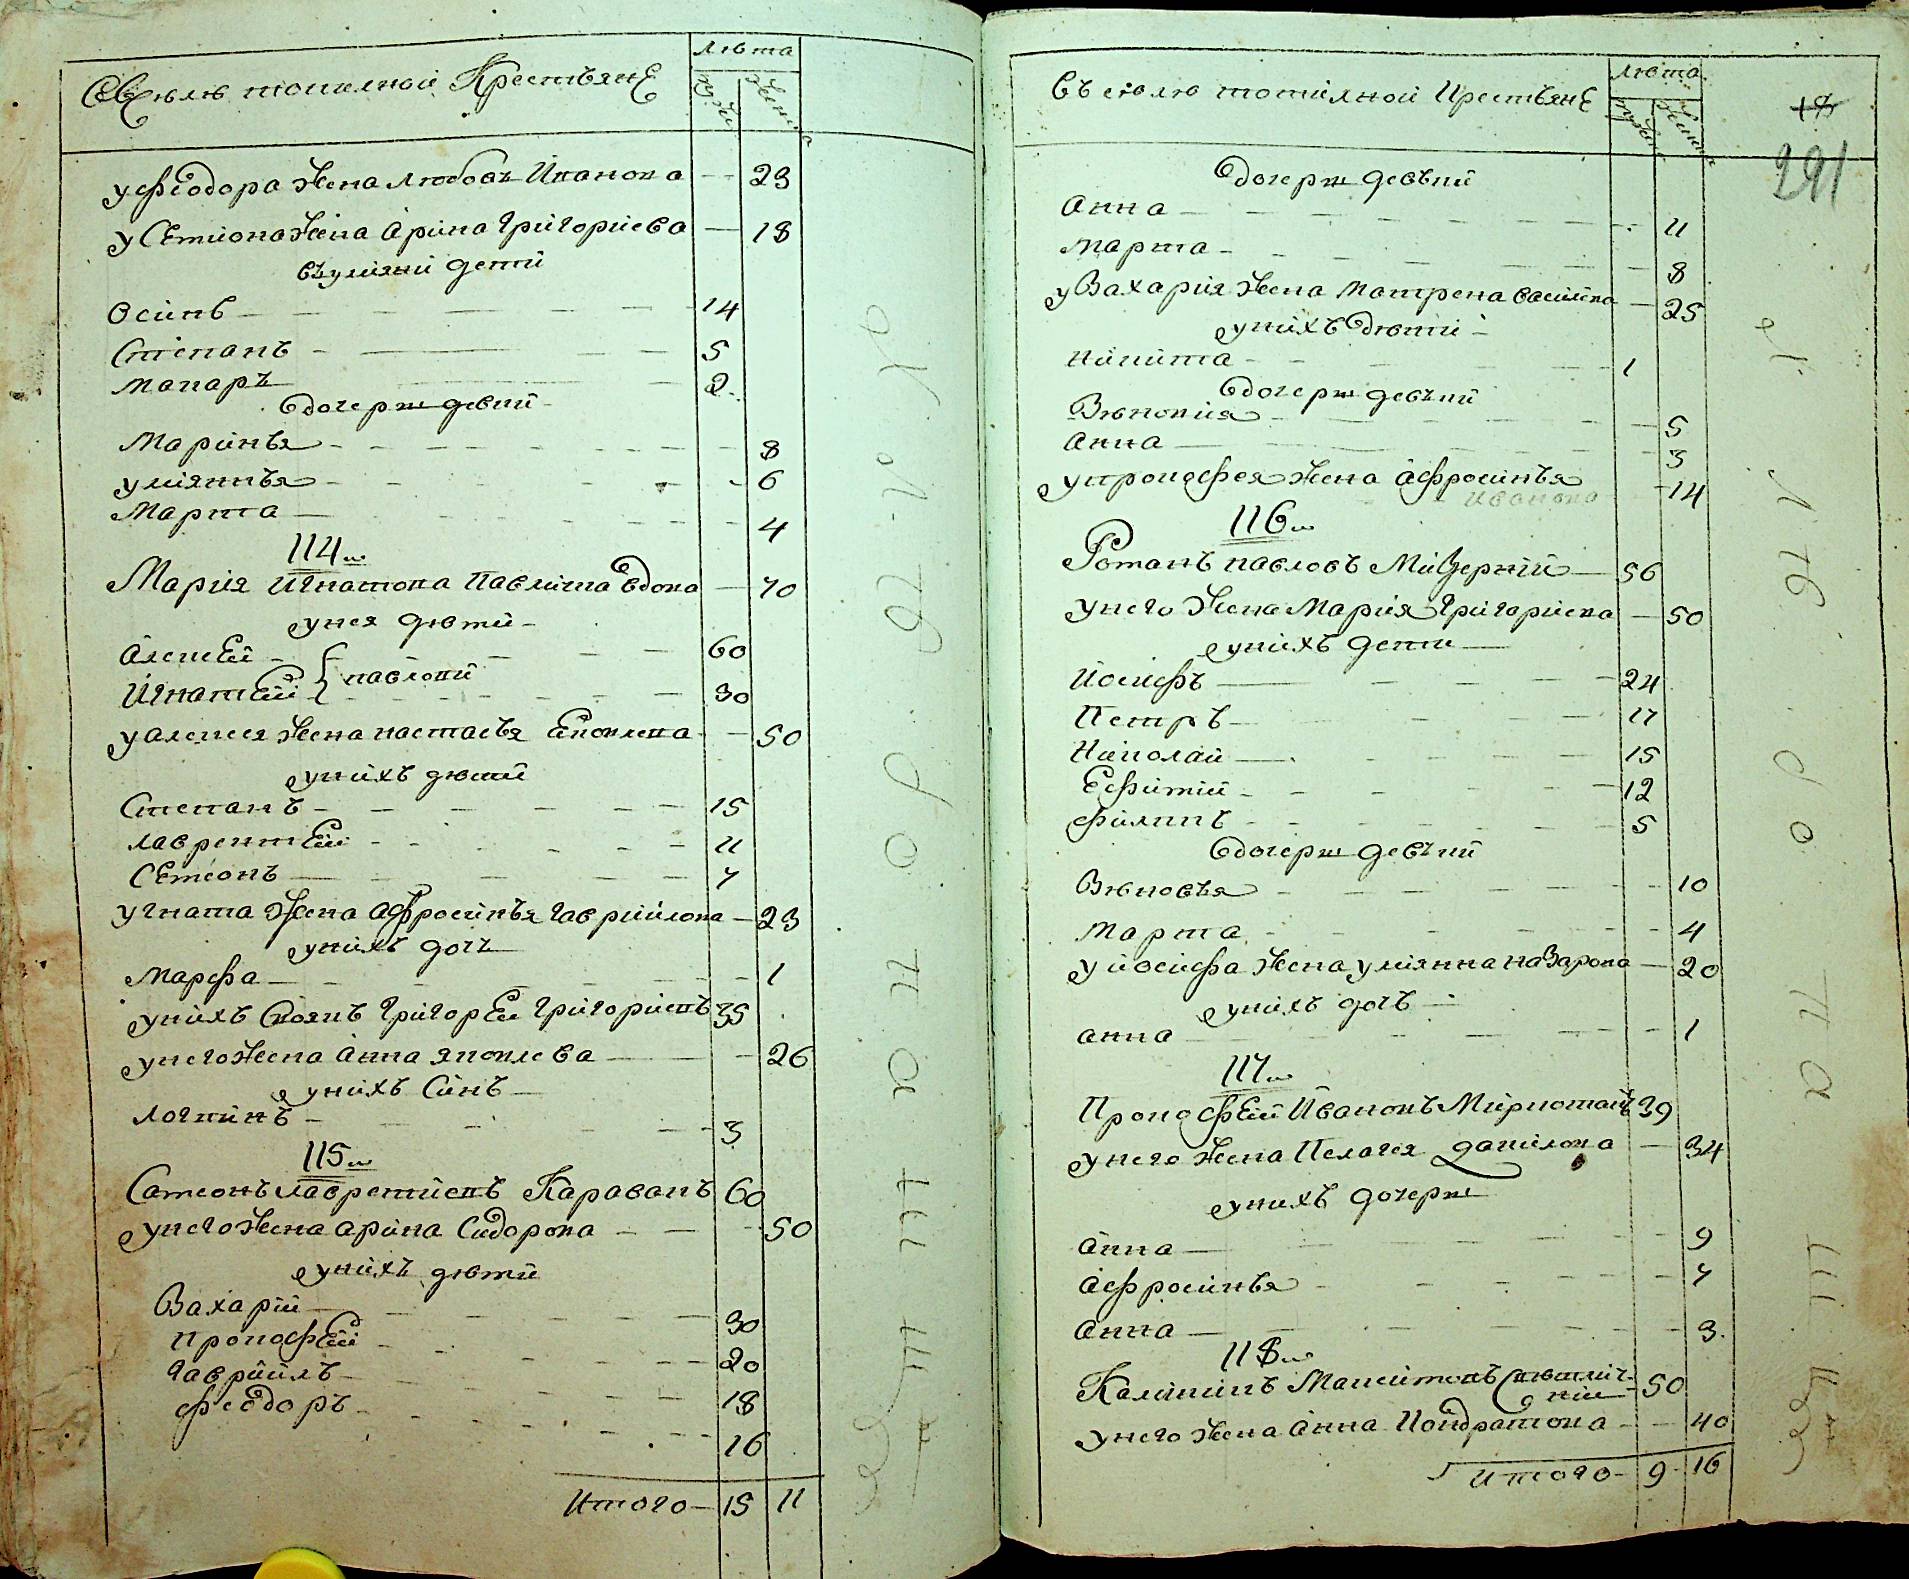 лѣта
Въ селѣ томилной Крестьяне
муж. женс.
у феодора жена любовь Иванова — 23
у Семиона жена Арина Григориева — 18
въ улияни дети
Осипъ — 14
Степанъ — 5
макаръ — 2
дочерѣ девки
Маринья — 8
улиянья — 6
Марта — 4
114ш
Мария Игнатова Павлиша вдова — 70
у нея дѣти
Алексей } павлови 60
Игнатей 30
у алексея жена настасья Яковлева — 50
у нихъ дѣти
Степанъ — 15
лаврентей — 11
Семеонъ — 7
у гната жена Афросинья гавриилова — 23
у нихъ дочь
марфа — 1
у нихъ своякъ григорей григориевъ 35
у него жена Анна яковлева — 26
у нихъ Синъ
логвинъ — 3
115ш
Самсонъ лаврентиевъ Караванъ 60
у него жена арина Сидорова — 50
у нихъ дѣти
Захарий — 30
прокофей — 20
гавриилъ — 18
феодоръ — 16
Итого — 15 11
лѣта
въ селѣ томилной Крестьяне
муж. женс.
18
291
дочерѣ девъки
Анна — 11
марта — 8
у Захария жена матрена василева — 25
у нихъ дѣти
никита — 1
дочерѣ девъки
Зѣновия — 5
анна — 3
у прокофея жена афросинья — 14
иванова
116ш
Романъ павловъ Мизерний — 56
у него жена Мария Григориева — 50
у нихъ дети
Иосифъ — 24
Петръ — 17
Николай — 15
Ефимий — 12
филипъ — 5
дочерѣ девъки
Зѣновья — 10
марта — 4
у иосифа жена улиянна назарова — 20
у нихъ дочь
анна — 1
117ш
Прокофей Ивановъ Мирноман 39
у него жена Пелагея данилова — 34
у нихъ дочерѣ
Анна — 9
Афросинья — 7
Анна — 3
118ш
Калинникъ Макситовъ 50
у него жена Анна Кондратова — 40
Итого — 9 16